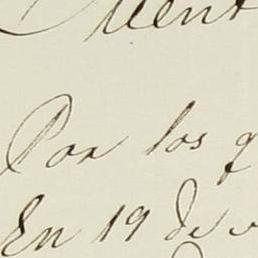 Por los q
En 19 de